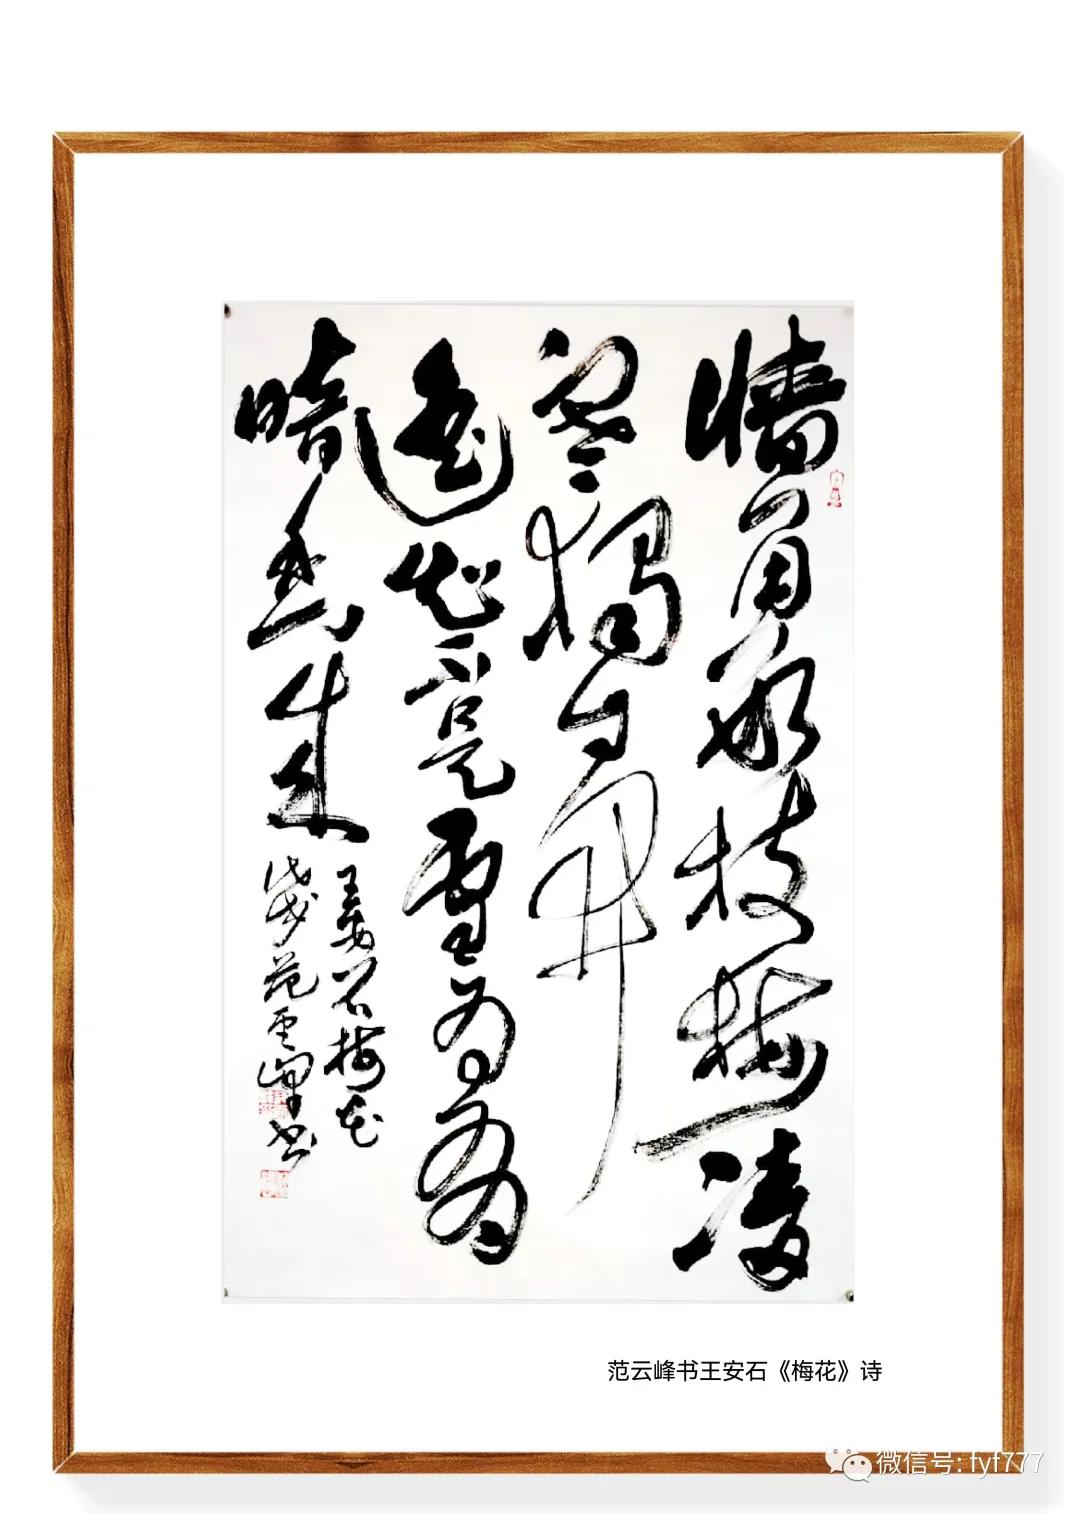 牆角数枝梅凌
寒獨自開
遥知不是雪为有
暗香来
王安石梅花
范云峰书
范云峰书王安石《梅花》诗
微信号: fyf777